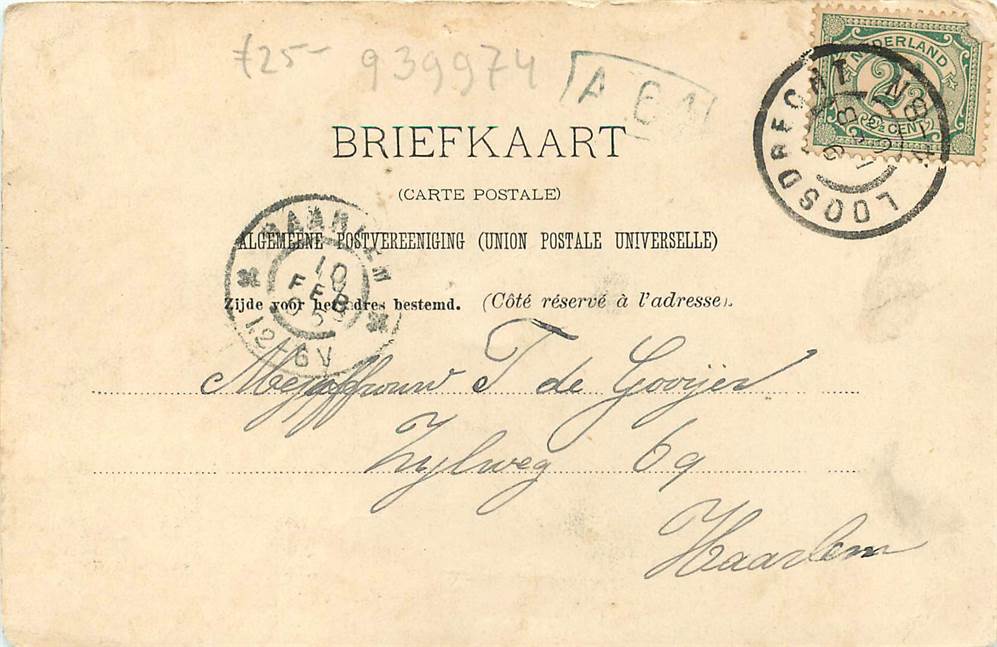 f25– 939974
A 61
NEDERLAND
2½
2½ CENT
LOOSDRECHT
BRIEFKAART
(CARTE POSTALE)
ALGEMEENE POSTVEREENIGING (UNION POSTALE UNIVERSELLE)
HAARLEM
10
FEB
12-6V
Zijde voor het adres bestemd. (Côté réservé à l'adresse).
Mejuffrouw T de Gooijer
Zylweg 69
Haarlem